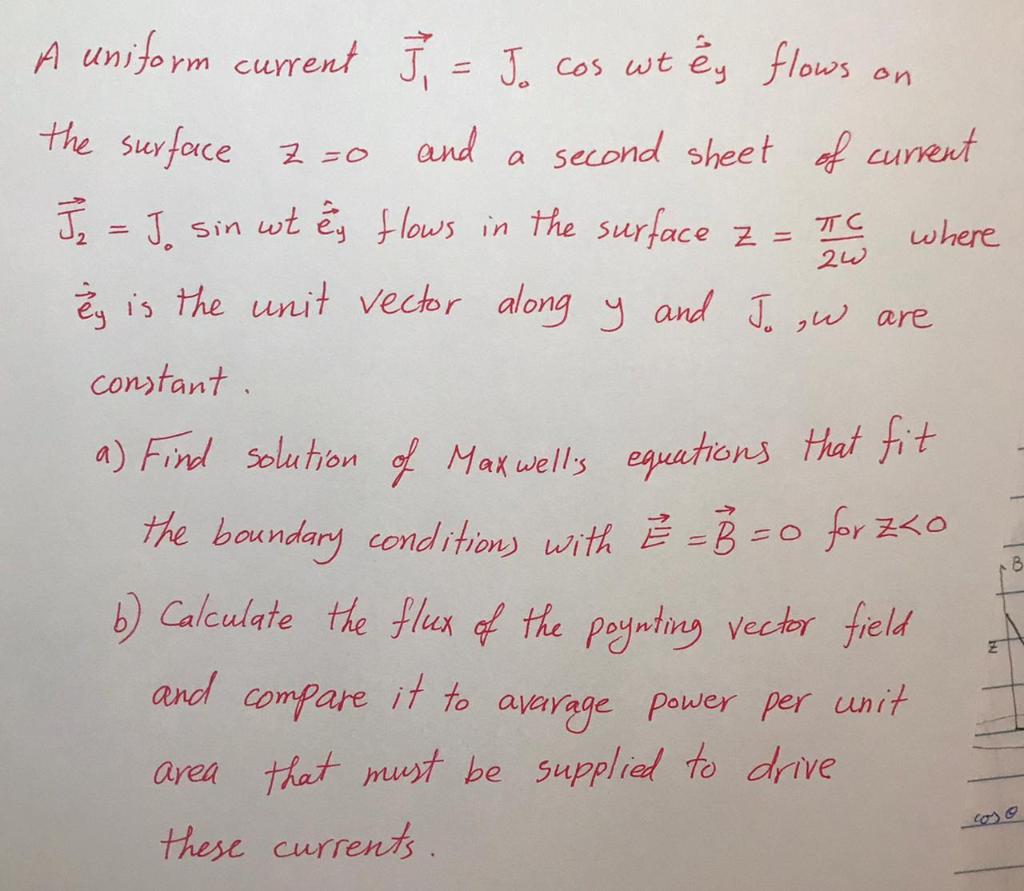 A uniform current J⃗₁ = J₀ cos wt ê⃗y flows on
the surface z = 0 and a second sheet of current
J⃗₂ = J₀ sin wt ê⃗y flows in the surface z = πc/2w where
ê⃗y is the unit vector along y and J₀, w are
constant.
a) Find solution of Maxwell's equations that fit
the boundary conditions with E⃗ = B⃗ = 0 for z<0
b) Calculate the flux of the poynting vector field
and compare it to avarage power per unit
area that must be supplied to drive
these currents.
B
z
cos θ